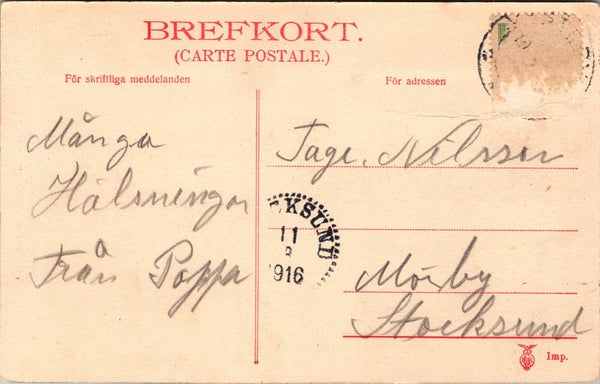 BREFKORT.
(CARTE POSTALE.)
För skriftliga meddelanden
För adressen
Många
Hälsningar
Från Pappa
Tage. Nilsson
KSUND
11
8
1916
Mörby
Stocksund
Imp.